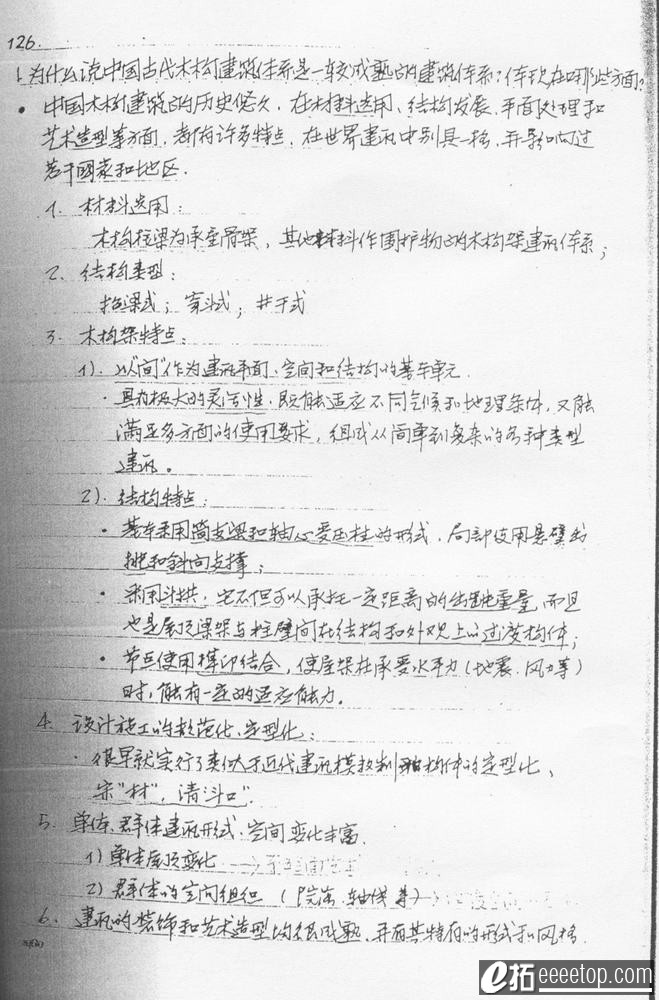 126.
1. 为什么说中国古代木构建筑体系是一较成熟的建筑体系?体现在哪些方面?
• 中国木构建筑的历史悠久,在材料选用、结构发展、平面处理和
艺术造型等方面,都有许多特点,在世界建筑中别具一格,并影响过
若干國家和地区.
1. 材料选用:
木构柱梁为承重骨架,其他材料作围护物的木构架建筑体系;
2. 结构类型:
抬梁式;穿斗式;井干式
3. 木构架特点:
1). 以“间”作为建筑平面、空间和结构的基本单元.
· 具有极大的灵活性,既能适应不同气候和地理条件,又能
满足多方面的使用要求,组成从简单到复杂的各种类型
建筑。
2). 结构特点:
• 基本采用简支梁和轴心受压柱的形式,局部使用悬臂出
挑和斜向支撑;
• 采用斗拱,它不但可以承托一定距离的出跳重量,而且
也是屋顶梁架与柱壁间在结构和外观上的过渡构件;
• 节点使用榫卯结合,使屋架在承受水平力(地震、风力等)
时,能有一定的适应能力。
4. 设计施工的规范化、定型化:
· 很早就实行了类似于近代建筑模数制和构件的定型化、
宋“材”,清“斗口”
5. 单体、群体建筑形式、空间变化丰富.
1) 单体屋顶变化 →
2) 群体的空间组织 (院落、轴线等) →
6. 建筑的装饰和艺术造型均很成熟,并有其特有的形式和风格.
e拓 eeeetop.com